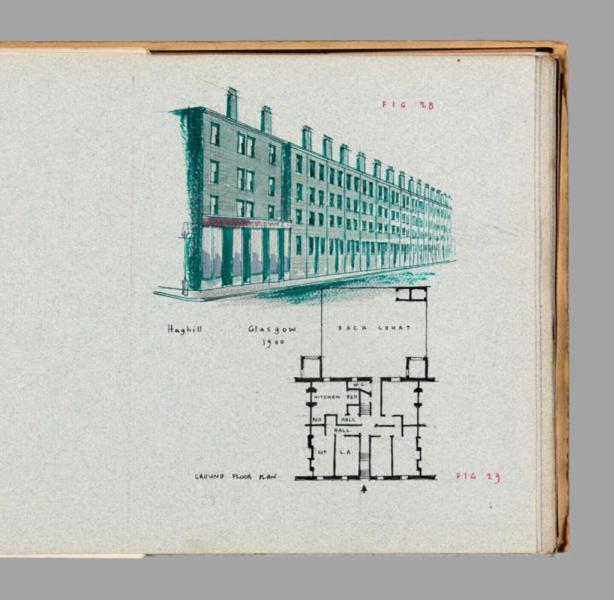 FIG 28
Haghill Glasgow
1900
BACK COURT
W.C.
KITCHEN BED
BED HALL
HALL
KIT L.R.
GROUND FLOOR PLAN
FIG 29
23